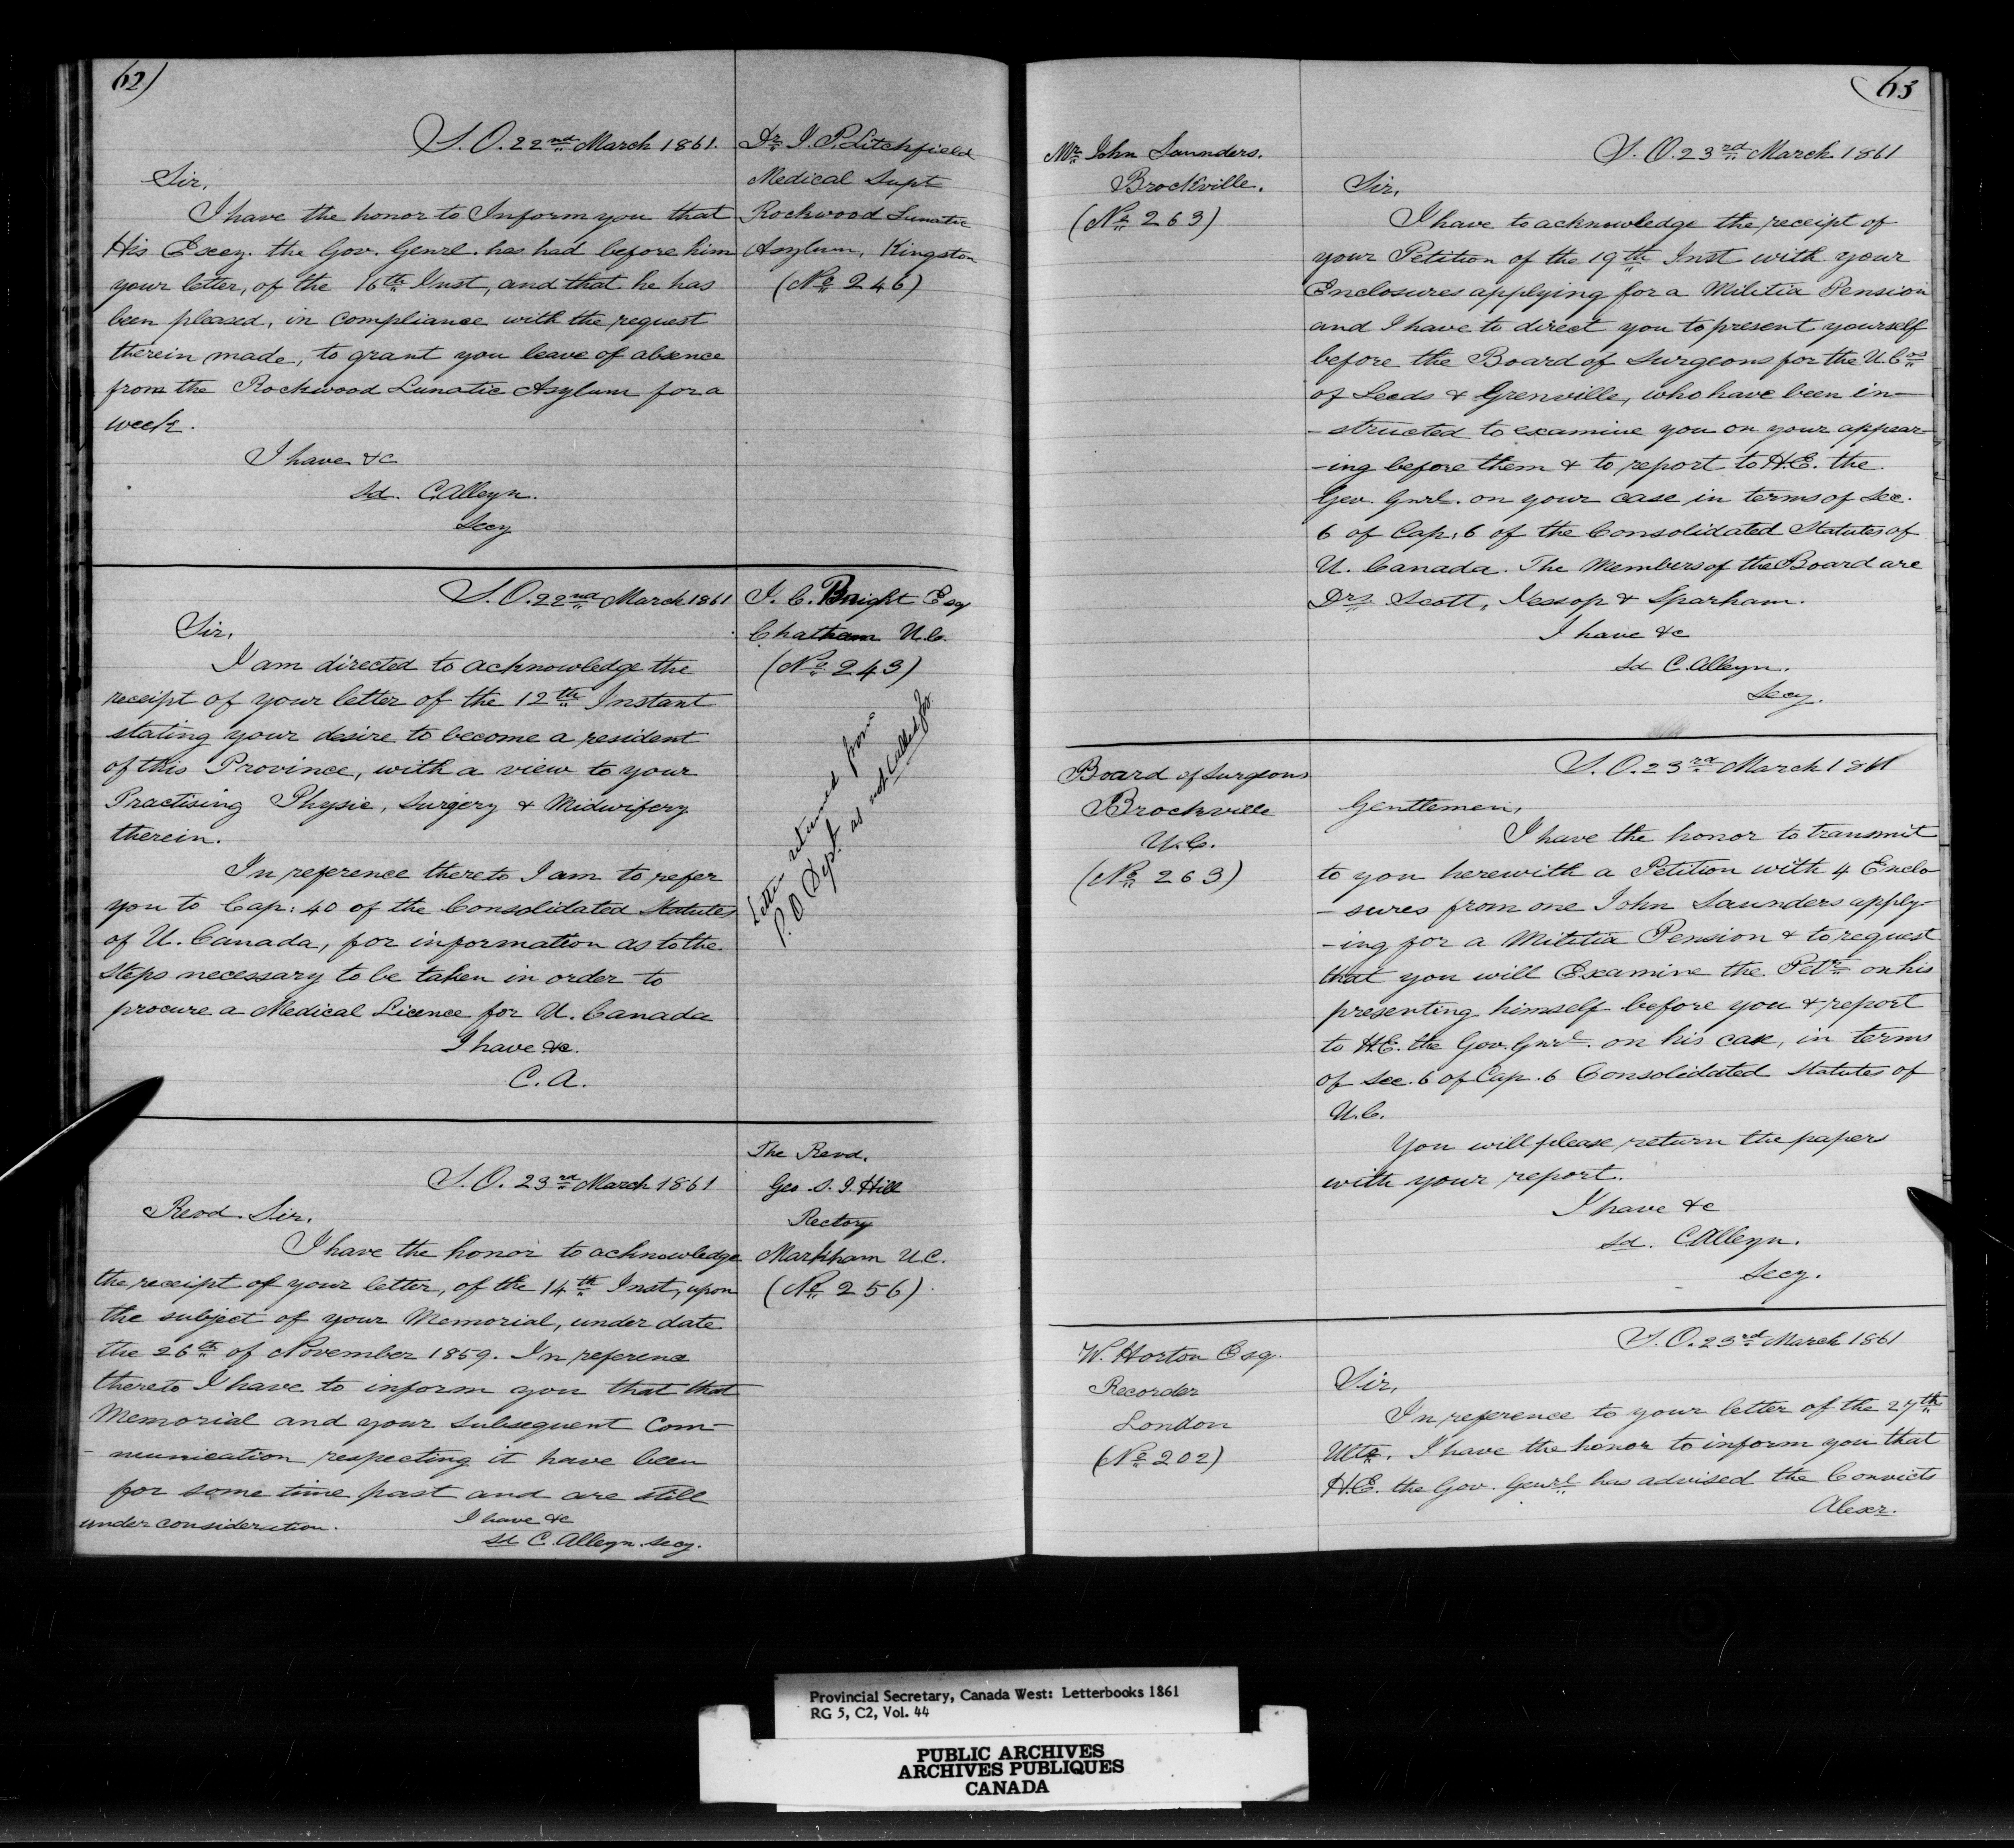 62)
S. O. 22nd March 1861.
Dr J. P. Litchfield
Medical Supt
Rockwood Lunatic
Asylum, Kingston
(No 246)
Sir,
I have the honor to Inform you that
His Excy. the Gov. Genrl. has had before him
your letter, of the 16th Inst, and that he has
been pleased, in compliance with the request
therein made, to grant you leave of absence
from the Rockwood Lunatic Asylum for a
week.
I have &c
Sd. C. Alleyn.
Secy
S. O. 22nd March 1861
J. C. Bright Esq
Chatham U.C.
(No 243)
Letter returned from
P. O Dept. as not Called for
Sir,
I am directed to acknowledge the
receipt of your letter of the 12th Instant
stating your desire to become a resident
of this Province, with a view to your
Practising Physic, Surgery & Midwifery
therein.
In reference thereto I am to refer
you to Cap: 40 of the Consolidated Statutes
of U. Canada, for information as to the
steps necessary to be taken in order to
procure a Medical Licence for U. Canada
I have &c.
C. A.
S. O. 23rd March 1861
The Revd.
Geo. S. J. Hill
Rectory
Markham U.C.
(No 256)
Revd. Sir,
I have the honor to acknowledge
the receipt of your letter, of the 14th Inst, upon
the subject of your Memorial, under date
the 26th of November 1859. In reference
thereto I have to inform you that that
Memorial and your subsequent Com-
-munication respecting it have been
for some time past and are still
under consideration.
I have &c
Sd C. Alleyn. Secy.
63
Mr John Saunders.
Brockville.
(No 263)
S. O. 23rd March 1861
Sir,
I have to acknowledge the receipt of
your Petition of the 19th Inst with your
Enclosures applying for a Militia Pension
and I have to direct you to present yourself
before the Board of Surgeons for the U. Cos
of Leeds & Grenville, who have been in-
-structed to examine you on your appear-
-ing before them & to report to H.E. the
Gov. Gnrl. on your case in terms of Sec.
6 of Cap: 6 of the Consolidated Statutes of
U. Canada. The Members of the Board are
Drs Scott, Jessop & Sparham.
I have &c
Sd C. Alleyn.
Secy.
Board of Surgeons
Brockville
U.C.
(No 263)
S. O. 23rd March 1861
Gentlemen,
I have the honor to transmit
to you herewith a Petition with 4 Enclo
-sures from one John Saunders apply-
-ing for a Militia Pension & to request
that you will Examine the Petr on his
presenting himself before you & report
to H.E. the Gov. Gnrl. on his case, in terms
of Sec. 6 of Cap. 6 Consolidated Statutes of
U.C.
You will please return the papers
with your report.
I have &c
Sd. C. Alleyn.
Secy.
W. Horton Esq.
Recorder
London
(No 202)
S. O. 23rd March 1861
Sir,
In reference to your letter of the 27th
Ulto. I have the honor to inform you that
H.E. the Gov. Genrl has advised the Convicts
Alexr.
Provincial Secretary, Canada West: Letterbooks 1861
RG 5, C2, Vol. 44
PUBLIC ARCHIVES
ARCHIVES PUBLIQUES
CANADA